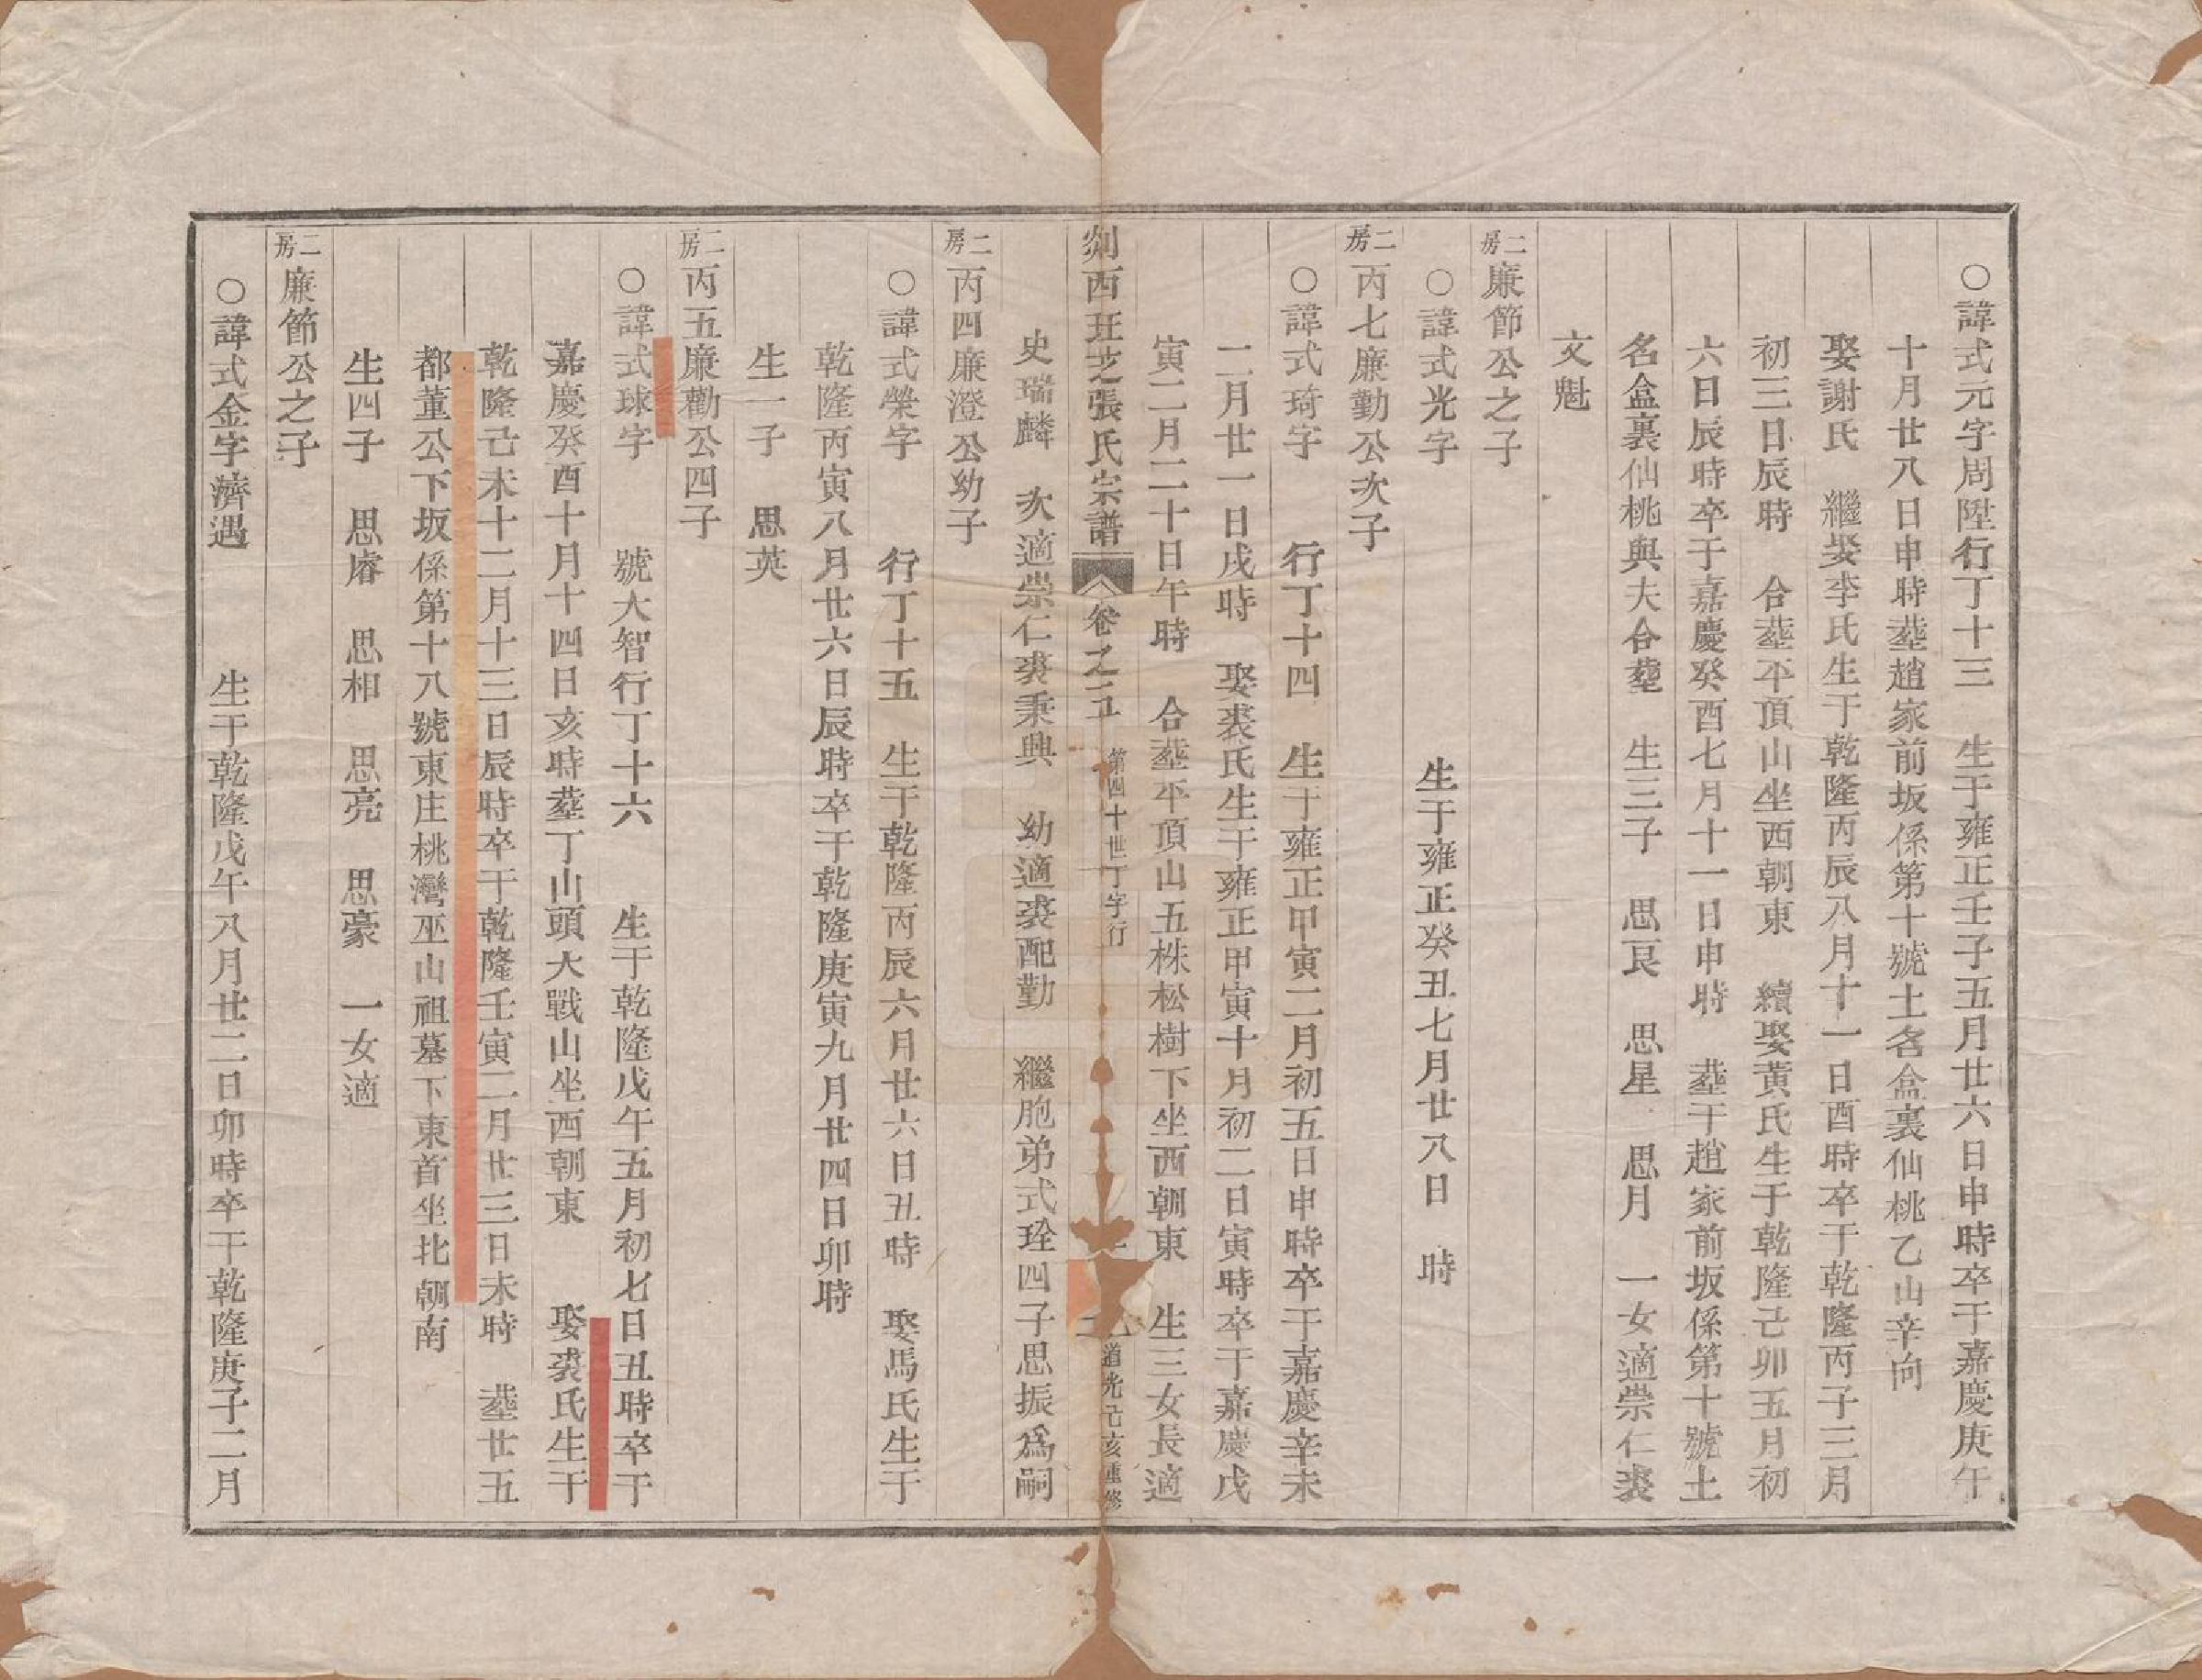 ○諱式元字周陞行丁十三　生于雍正壬子五月廿六日申時卒于嘉慶庚午
十月廿八日申時塟趙家前坂係第十號土名盒裏仙桃乙山辛向
娶謝氏　繼娶李氏生于乾隆丙辰八月十一日酉時卒于乾隆丙子三月
初三日辰時　合塟平頂山坐西朝東　續娶黃氏生于乾隆己卯五月初
六日辰時卒于嘉慶癸酉七月十一日申時　塟于趙家前坂係第十號土
名盒裏仙桃與夫合塟　生三子　思艮　思星　思月　一女適崇仁裘
文魁
二房廉節公之子
○諱式光字　生于雍正癸丑七月廿八日　時
二房丙七廉勤公次子
○諱式琦字　行丁十四　生于雍正甲寅二月初五日申時卒于嘉慶辛未
二月廿一日戌時　娶裘氏生于雍正甲寅十月初二日寅時卒于嘉慶戊
寅二月二十日午時　合塟平頂山五株松樹下坐西朝東　生三女長適
剡西珏芝張氏宗譜　卷之二　第四十世丁字行　道光己亥重修
史瑞麟　次適崇仁裘秉興　幼適裘配勤　繼胞弟式琻四子思振爲嗣
二房丙四廉澄公幼子
○諱式榮字　行丁十五　生于乾隆丙辰六月廿六日丑時　娶馬氏生于
乾隆丙寅八月廿六日辰時卒于乾隆庚寅九月廿四日卯時
生一子　思英
二房丙五廉勸公四子
○諱式球字　號大智行丁十六　生于乾隆戊午五月初七日丑時卒于
嘉慶癸酉十月十四日亥時塟丁山頭大戰山坐西朝東　娶裘氏生于
乾隆己未十二月十三日辰時卒于乾隆壬寅二月廿三日未時　塟廿五
都董公下坂係第十八號東庄桃灣巫山祖墓下東首坐北朝南
生四子　思睿　思相　思亮　思豪　一女適
二房廉節公之子
○諱式金字濟遇　生于乾隆戊午八月廿二日卯時卒于乾隆庚子二月